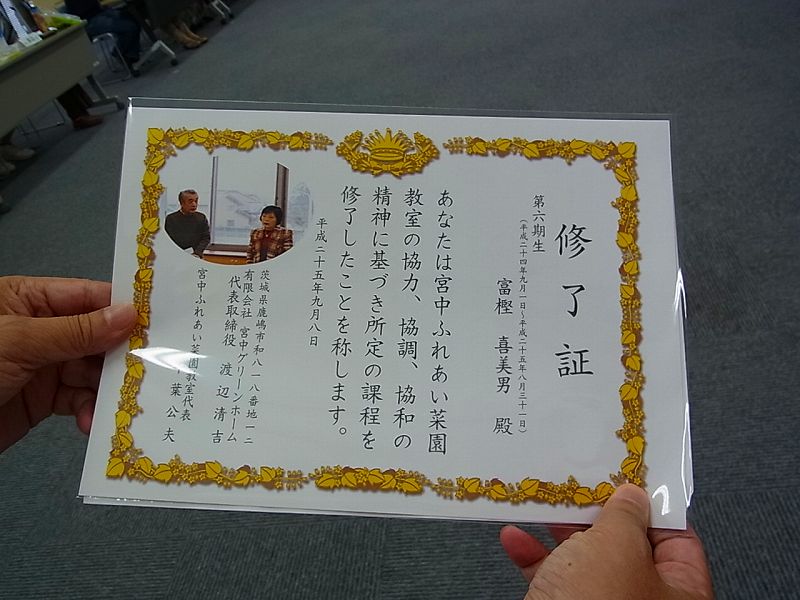 修了証
第六期生
(平成二十四年九月一日~平成二十五年八月三十一日)
富樫 喜美男 殿
あなたは宮中ふれあい菜園
教室の協力、協調、協和の
精神に基づき所定の課程を
修了したことを称します。
平成二十五年九月八日
茨城県鹿嶋市和八一八番地一二
有限会社 宮中グリーンホーム
代表取締役 渡辺清吉
宮中ふれあい菜園教室代表
葉公夫